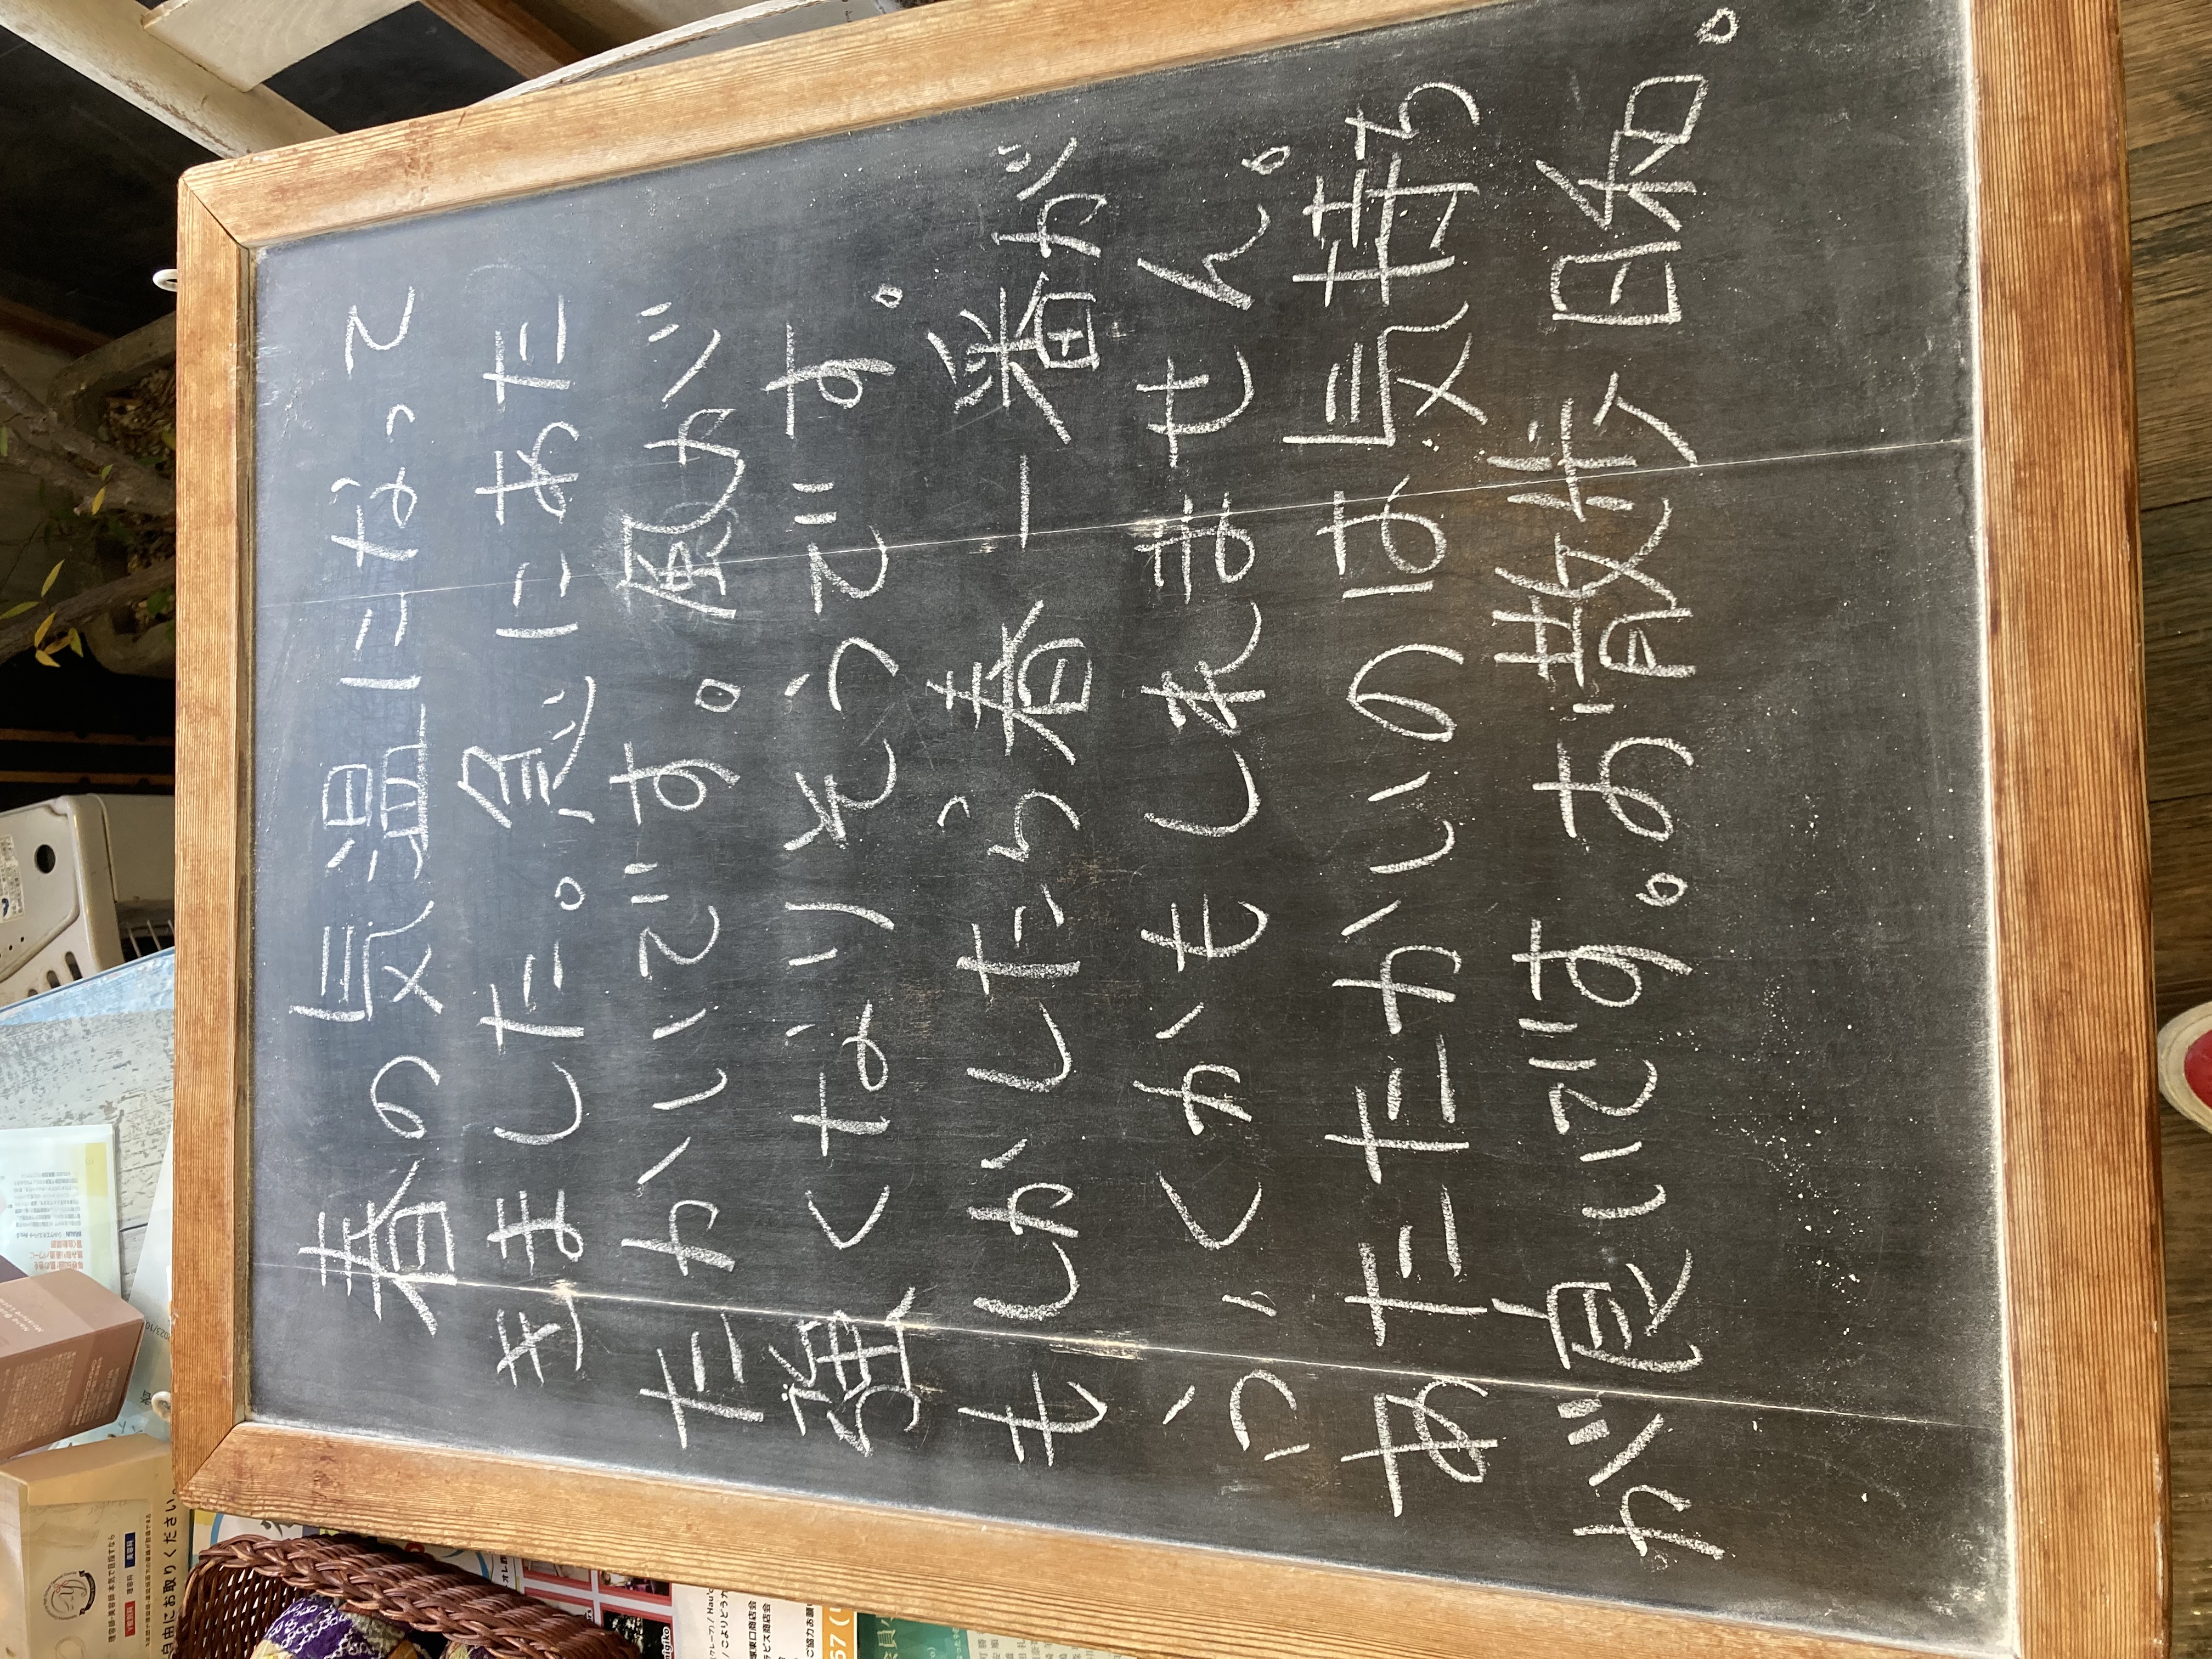 春の気温になって
きました。急にあた
たかいです。風が
強くなりそうです。
もしかしたら春一番が
ふくかもしれません。
あたたかいのは気持ち
が良いです。お散歩日和。
自由にお取りください。